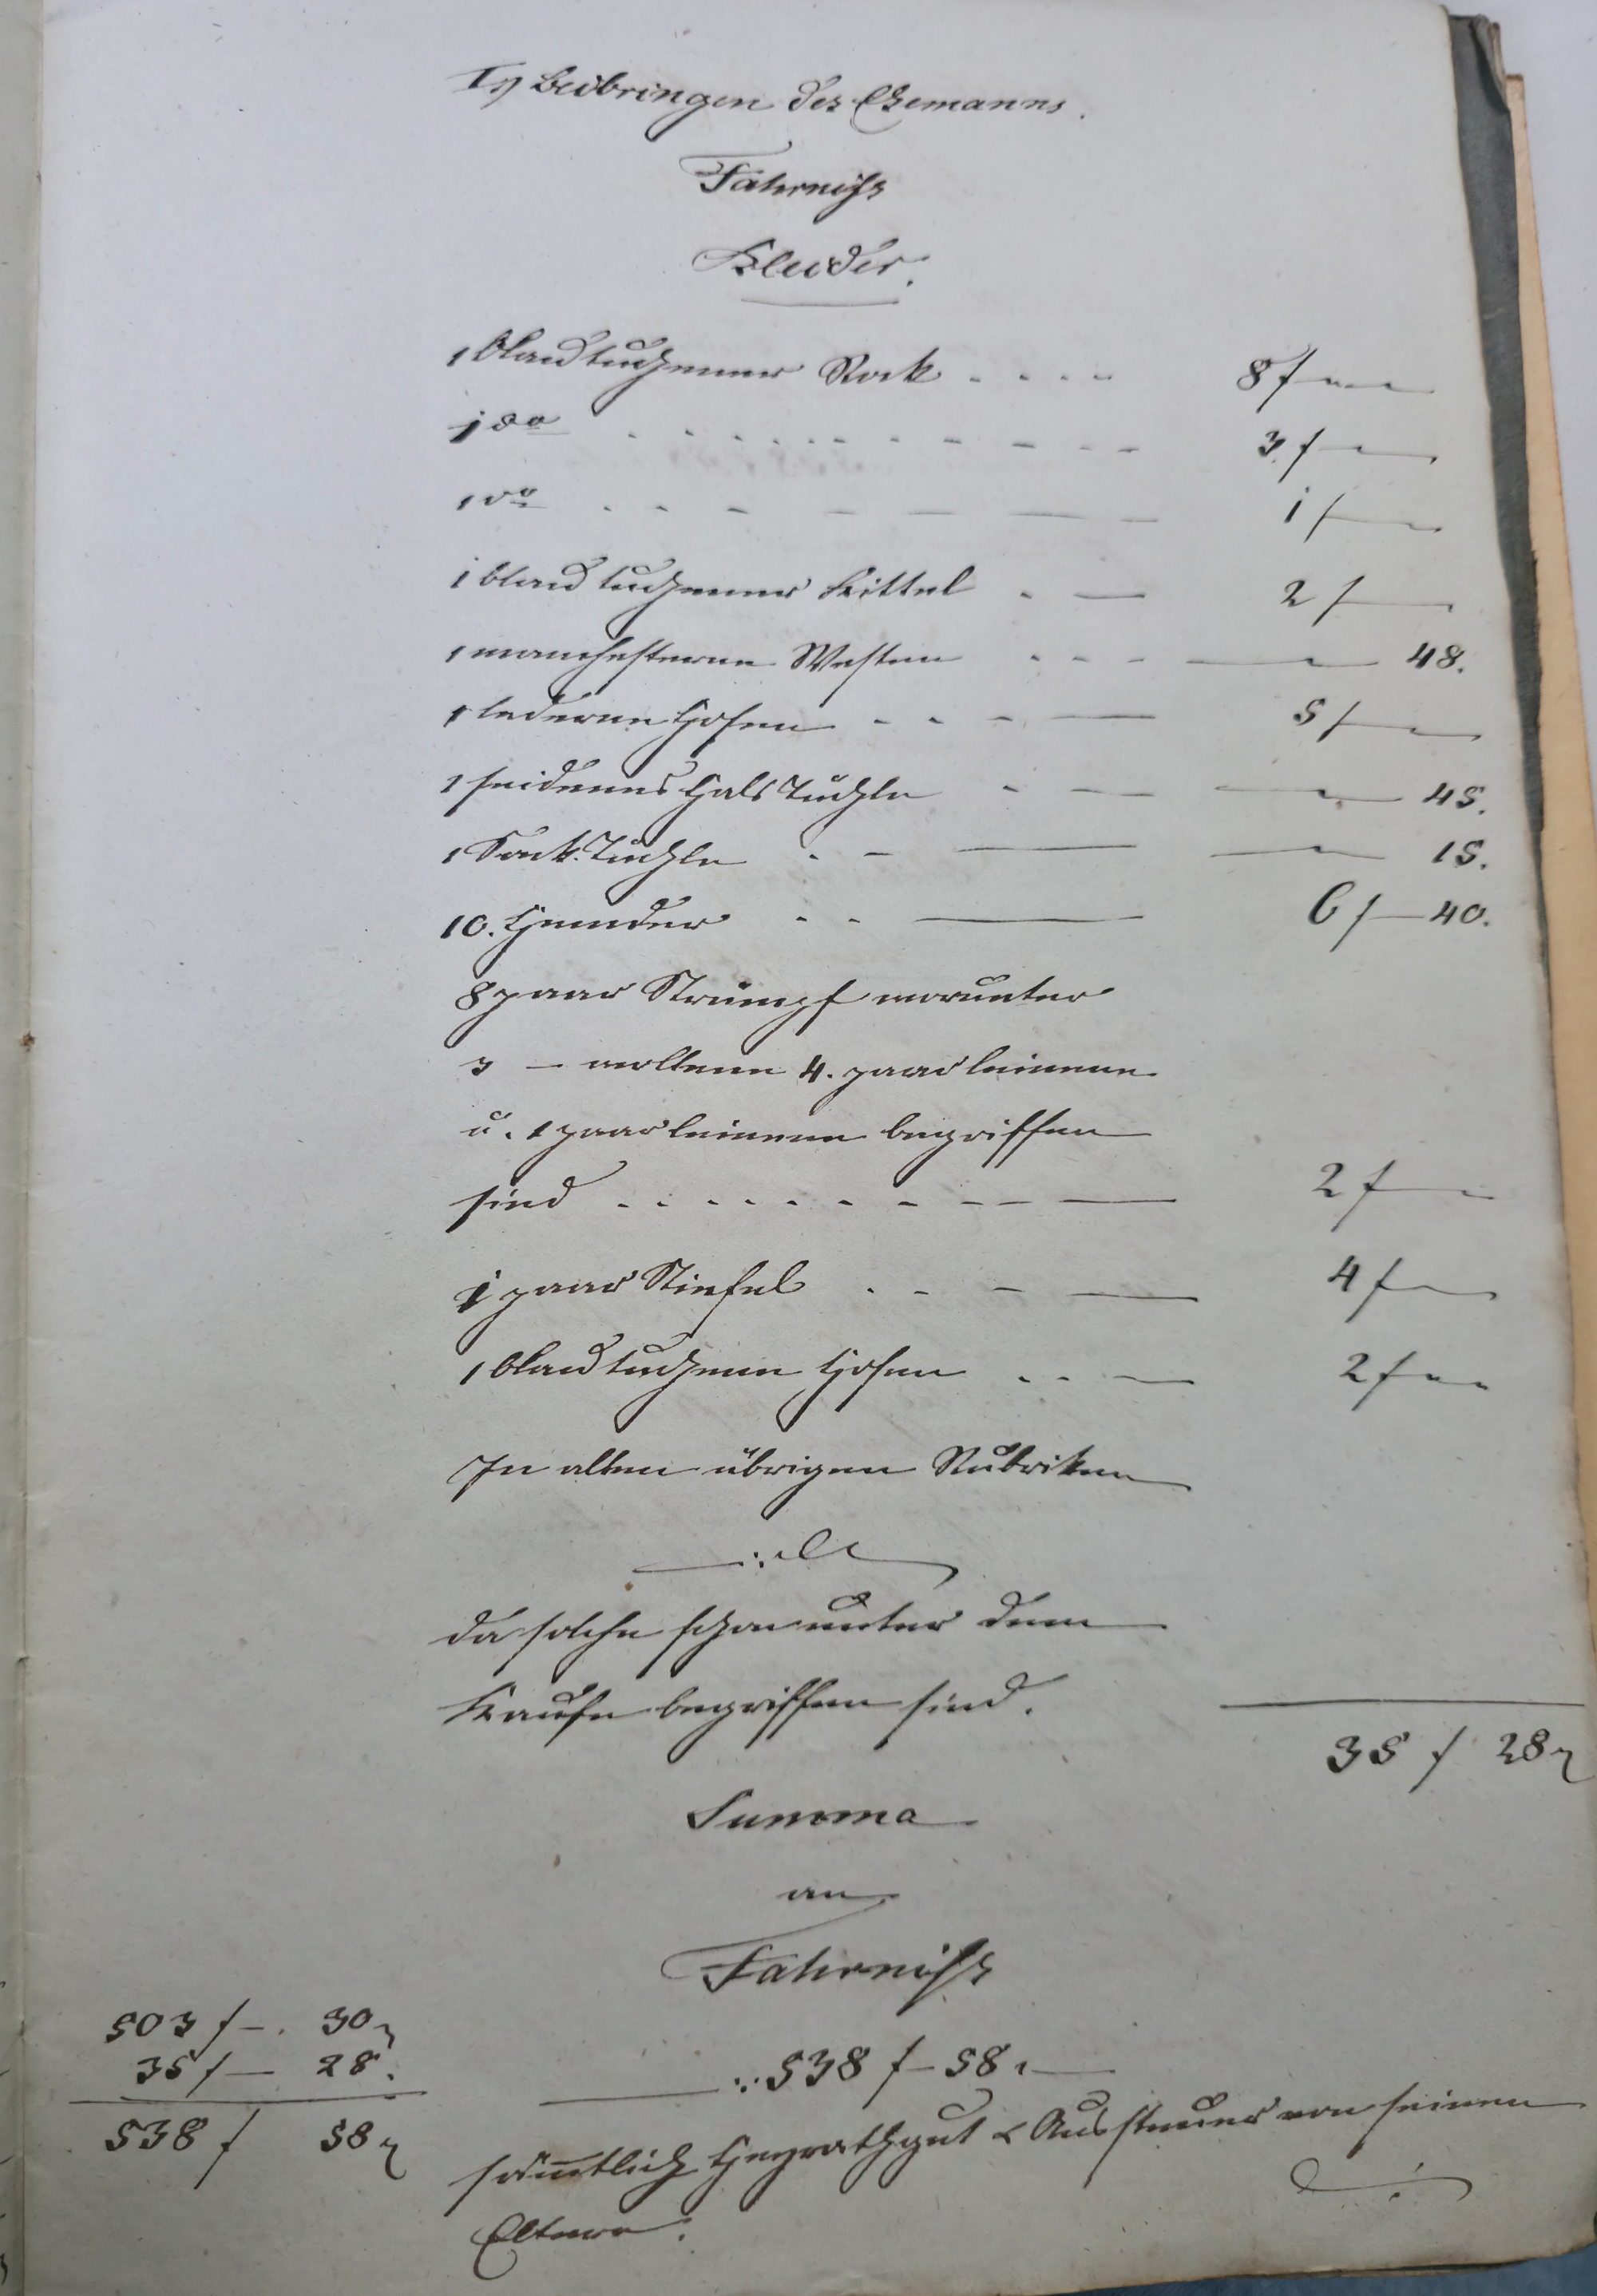 I, Beibringen des Ehemanns.
Fahrniß
Kleider.
1 blautuchener Rock . . . . 8 f — 
1 do . . . . . . . . . 3 f —
1 do . . . — — — 1 f —
1 blau tuchener Kittel . — 2 f —
1 manchesterne Westen . . . — 48.
1 lederne Hosen . . . — 5 f —
1 seidenes Hals Tüchle . — — 45.
1 Sack Tüchle . — — 15.
10. Hemder . . — 6 f — 40.
8 paar Strümpf worunter
3 — wollene 4. paar leinene
u. 1 paar leinene begriffen
sind . . . . . . . — 2 f —
1 paar Stiefel . . — 4 f —
1 blautuchene Hosen . . — 2 f —
In allen übrigen Rubriken
da solche schon unter dem
Kaufe begriffen sind.
35 f 28
Summa
an
Fahrniß
503 f —. 30
35 f — 28.
538 f 58
538 f — 58.
sämtlich Heyrathgut & Aussteuer von seinen
Eltern.